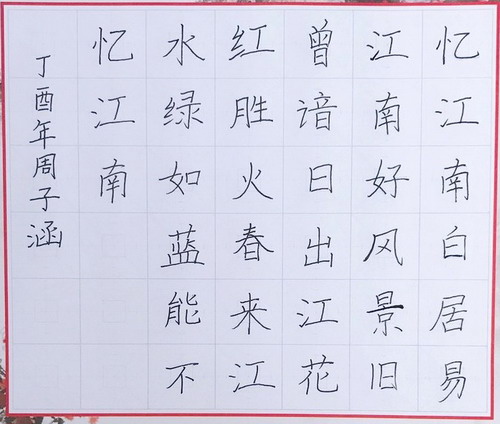 忆江南白居易
江南好风景旧
曾谙日出江花
红胜火春来江
水绿如蓝能不
忆江南
丁酉年周子涵